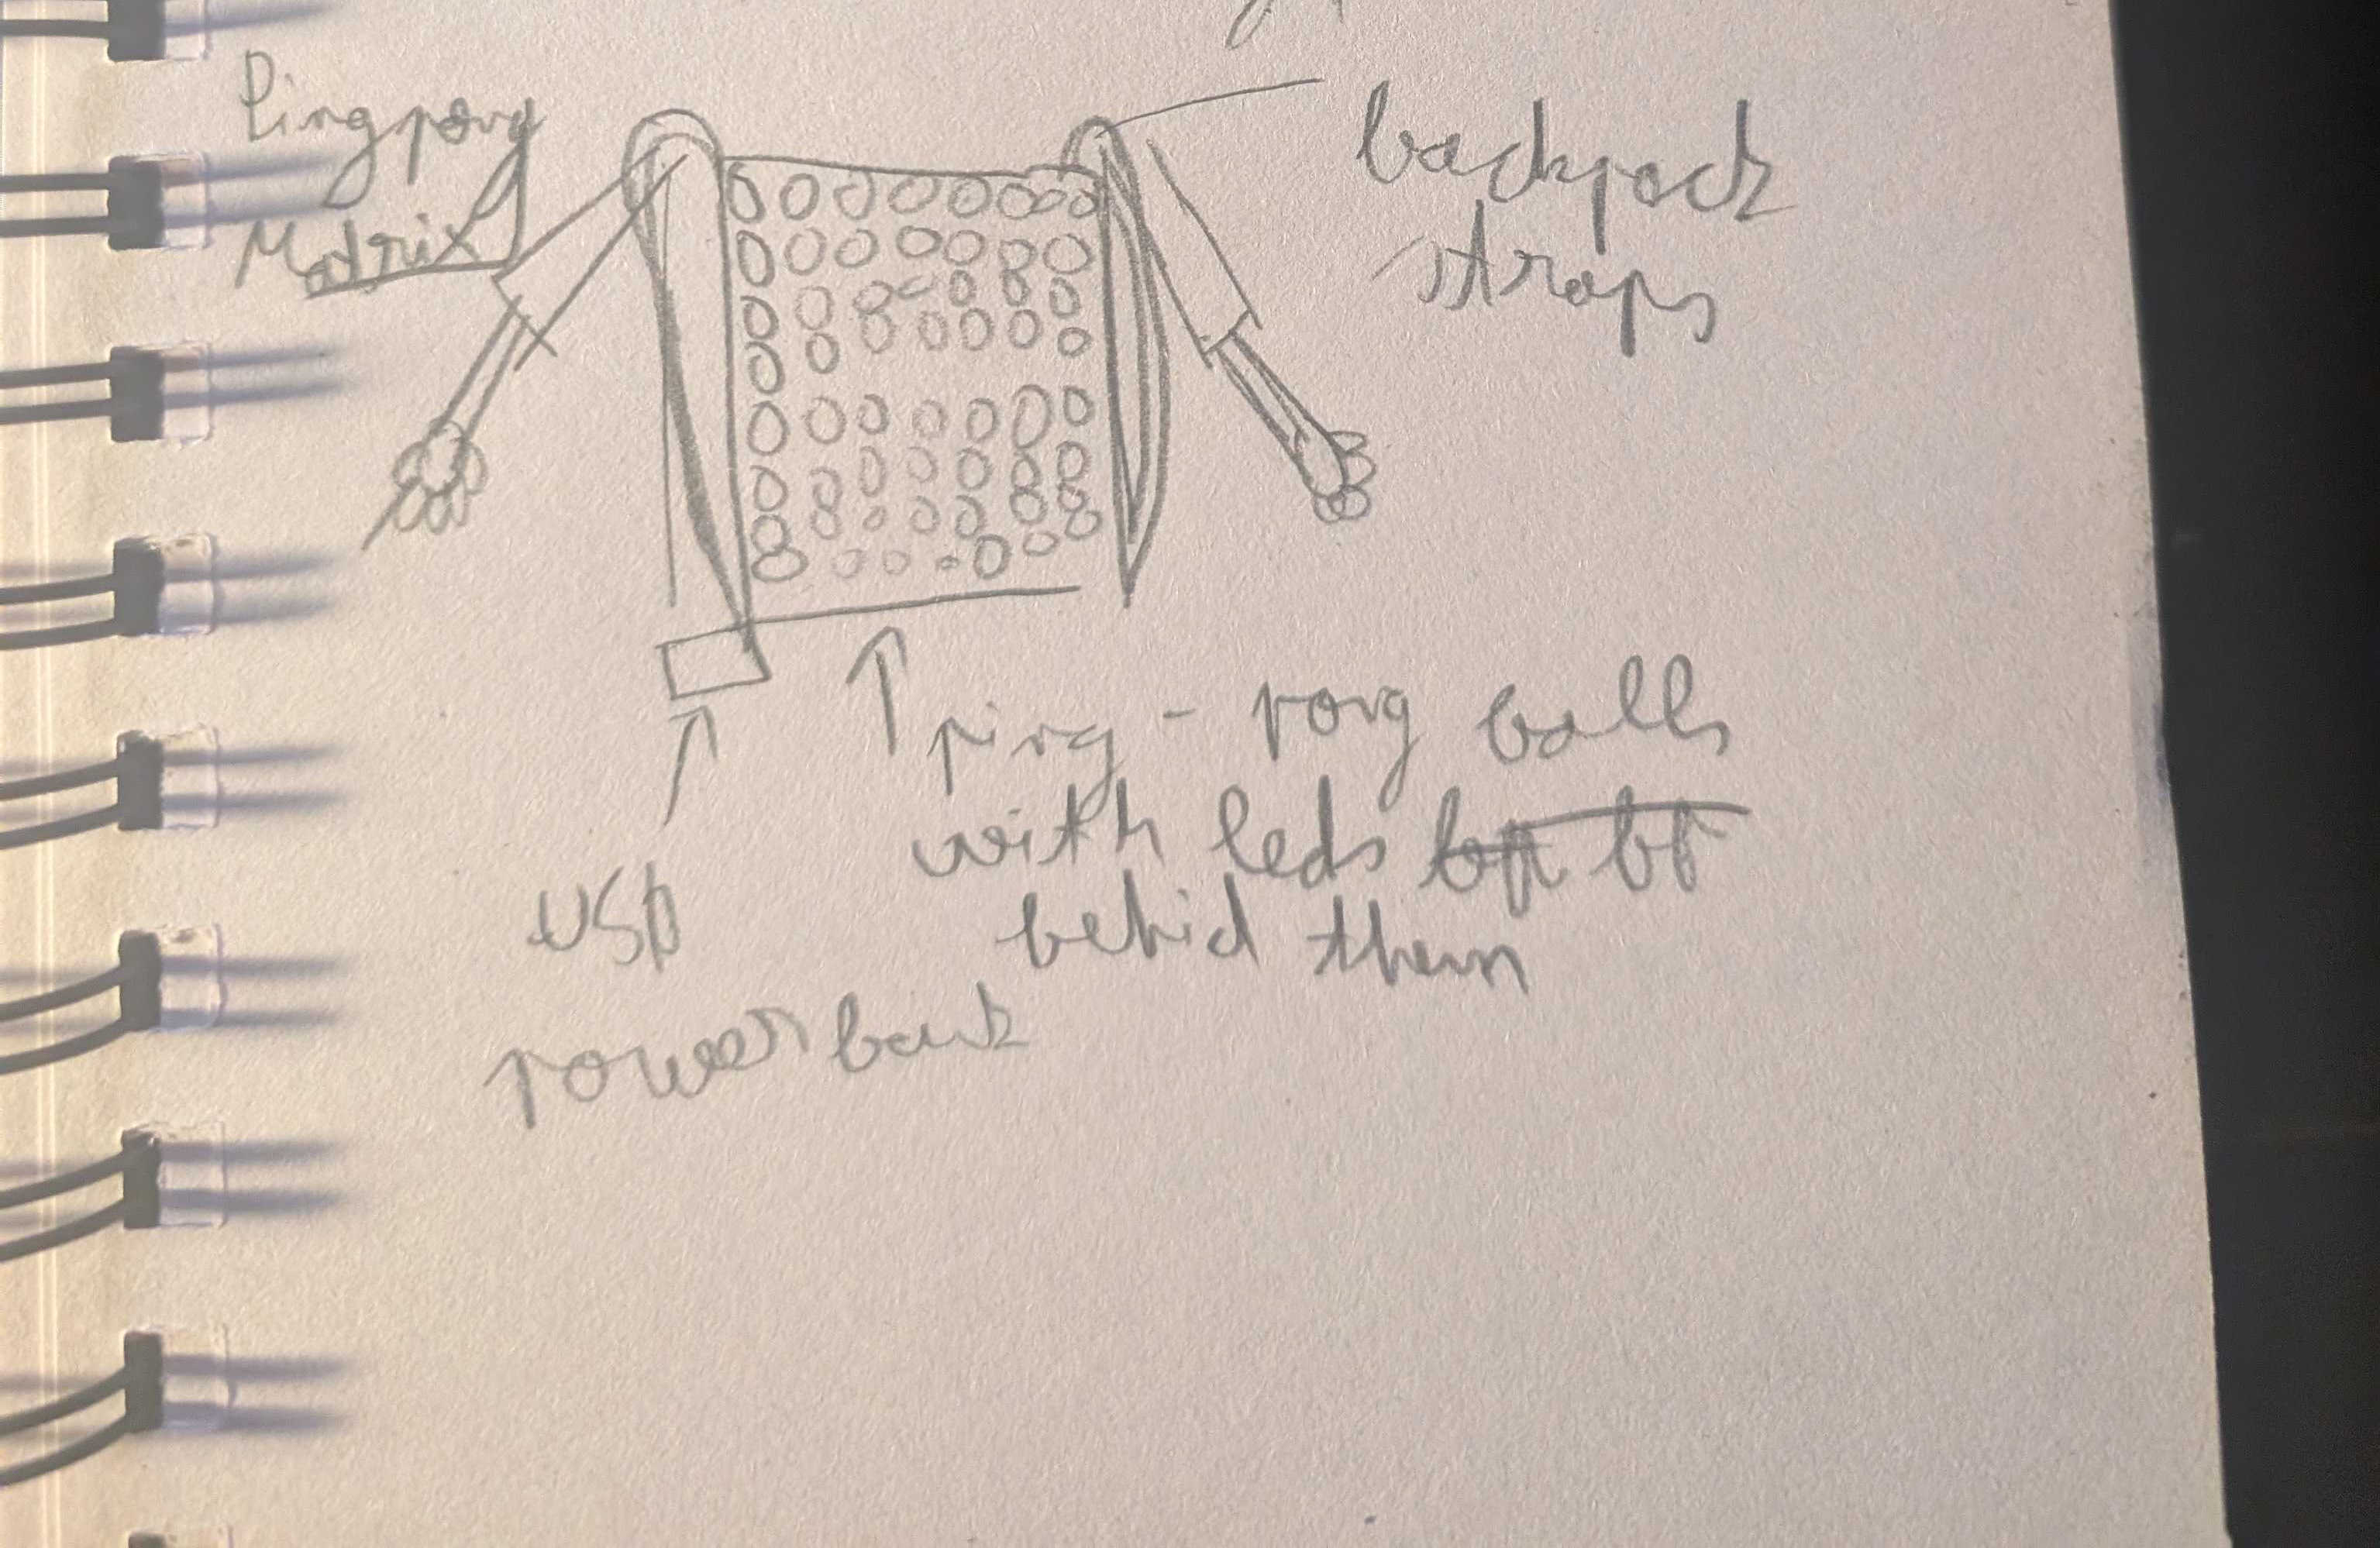 Pingpong
Matrix
backpack
straps
ping-pong balls
with leds
behid them
USb
powerbank